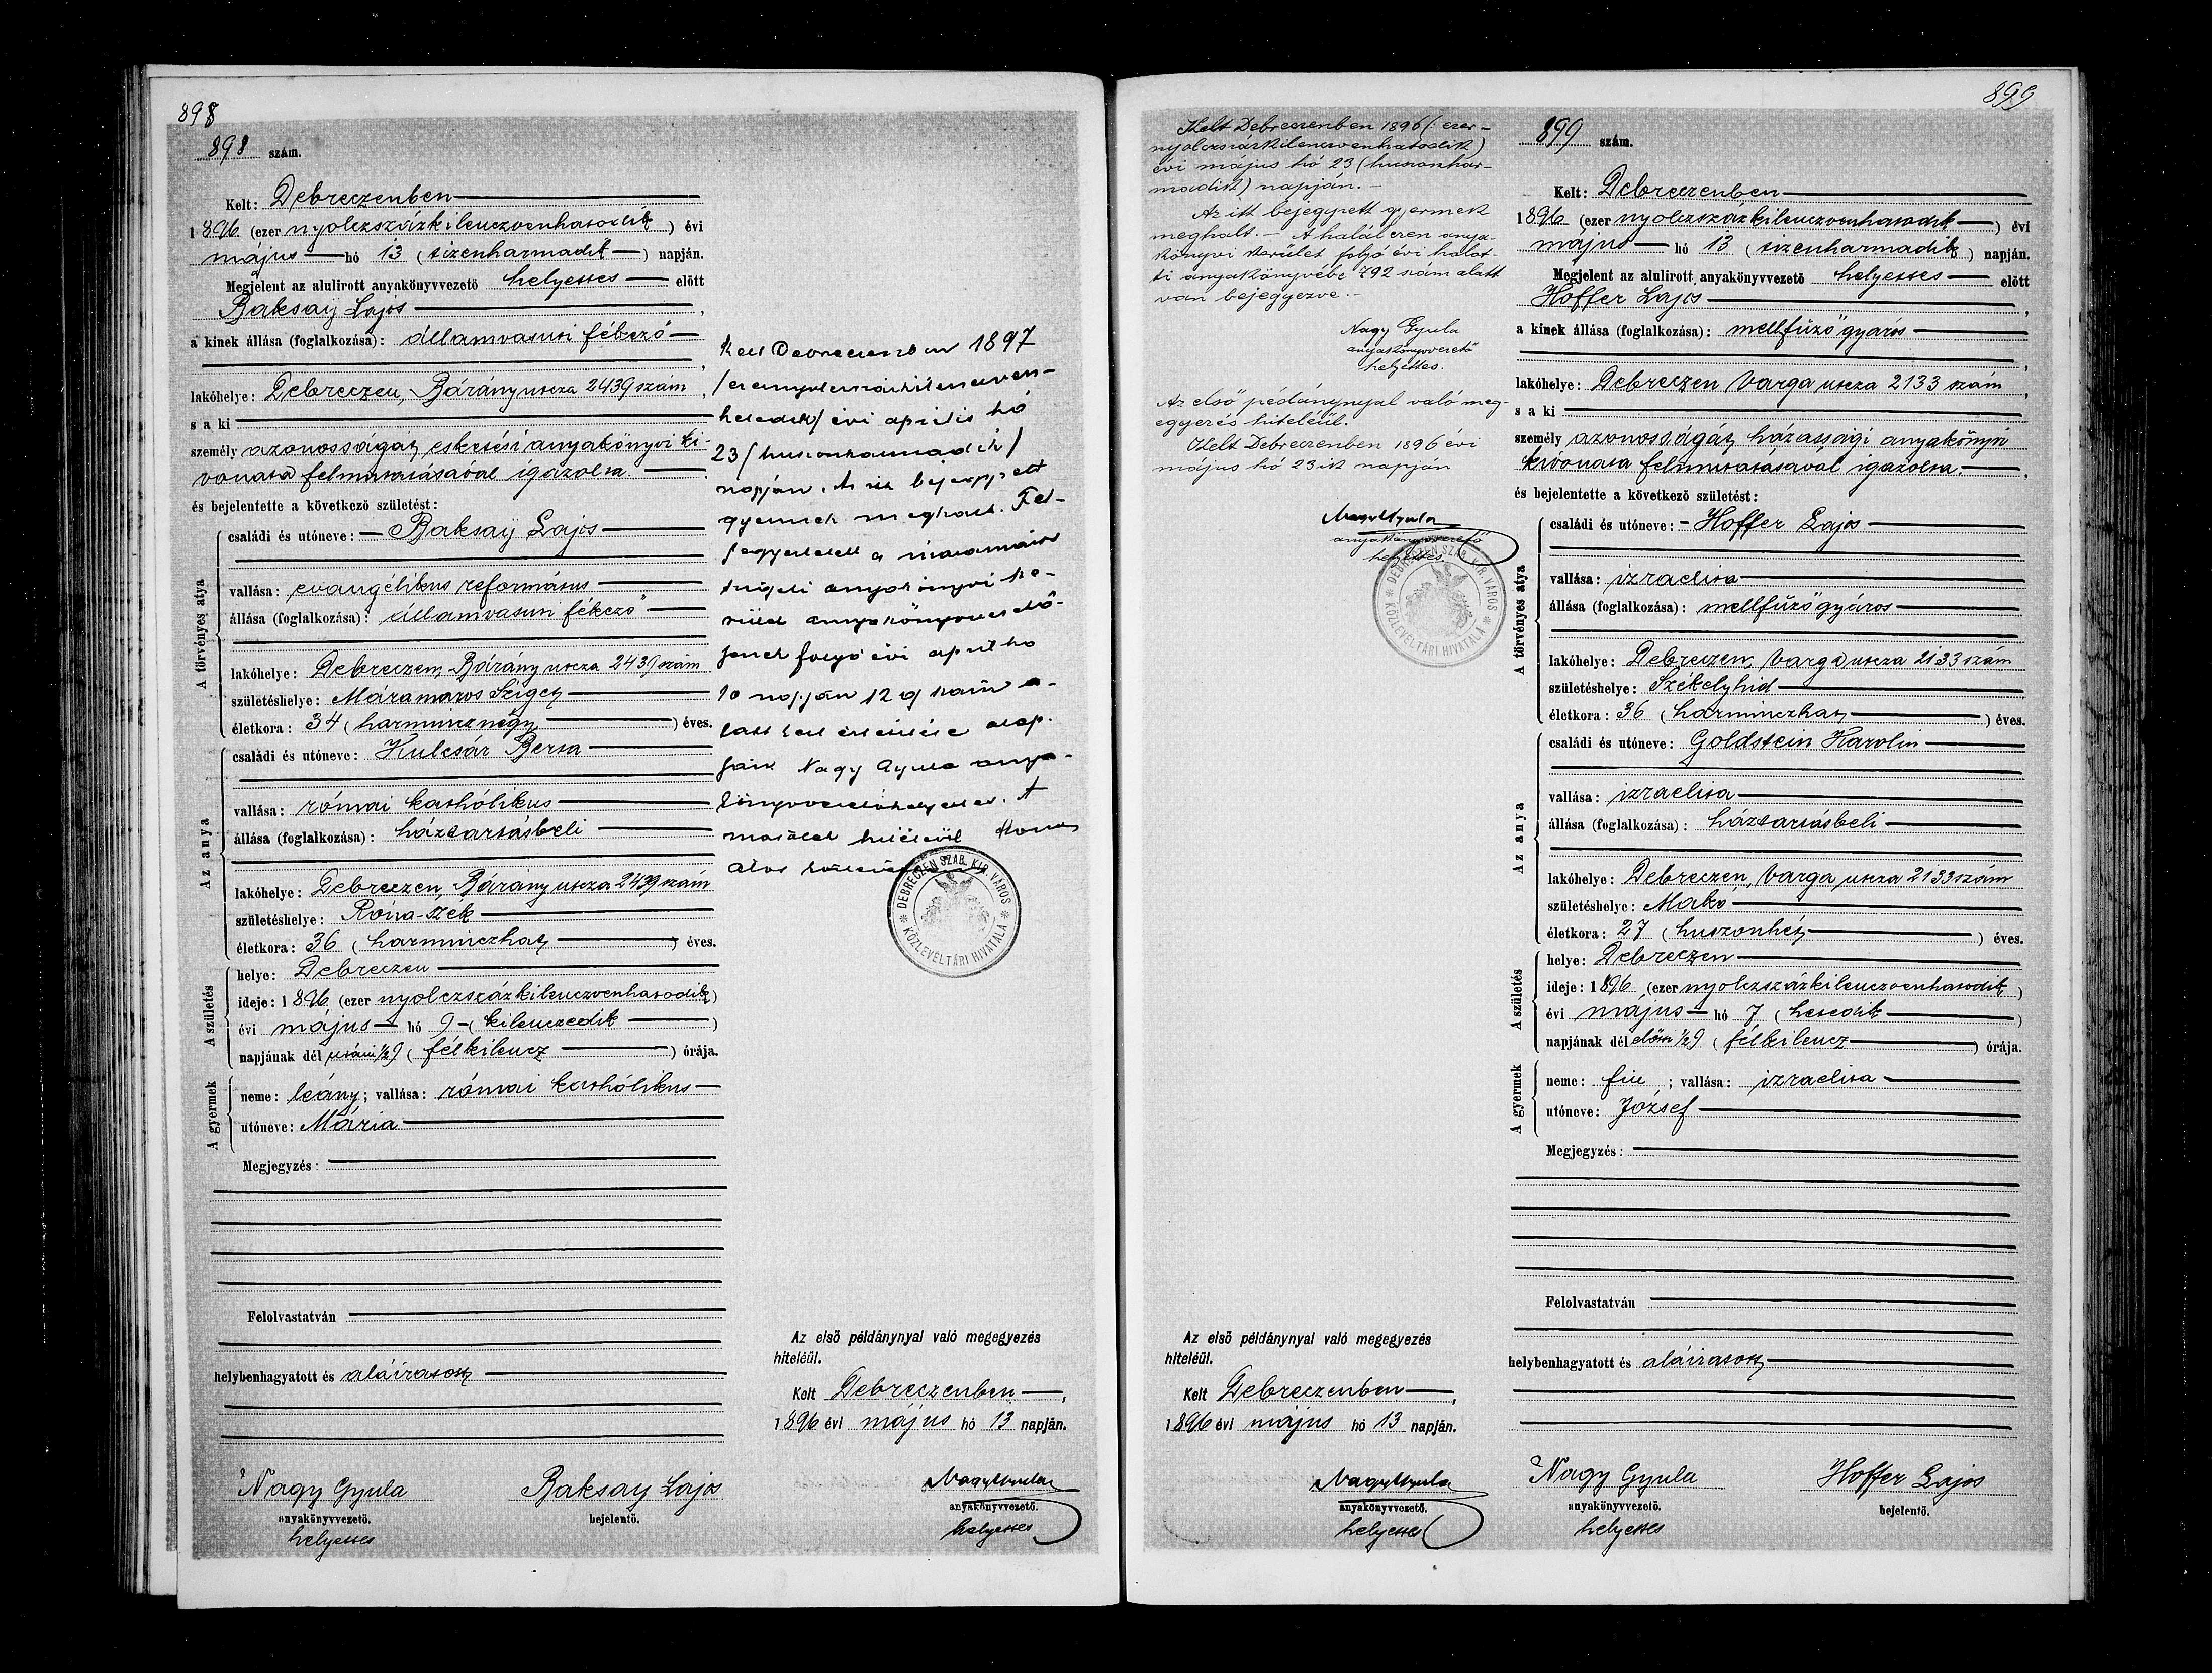 898
898 szám.
Kelt: Debreczenben
1896 (ezer nyolczszázkilenczvenhatodik) évi
május hó 13 (tizenharmadik) napján.
Megjelent az alulirott anyakönyvvezető helyettes előtt
Baksaÿ Lajos,
a kinek állása (foglalkozása): államvasuti fékező
,
lakóhelye: Debreczen, Bárány utcza 2439 szám,
s a ki
személy azonosságát, esketési anyakönyvi ki-
vonata felmutatásával igazolta.
és bejelentette a következő születést:
A törvényes atya
családi és utóneve: Baksaÿ Lajos
vallása: evangélikus református
állása (foglalkozása): államvasuti fékező
lakóhelye: Debreczen, Bárány utcza 2439 szám
születéshelye: Máramaros Sziget
életkora: 34 (harmincznégy) éves.
Az anya
családi és utóneve: Kulcsár Berta
vallása: római kathólikus
állása (foglalkozása): háztartásbeli
lakóhelye: Debreczen, Bárány utcza 2439 szám
születéshelye: Róna-szék
életkora: 36 (harminczhat) éves.
A születés
helye: Debreczen
ideje: 1896 (ezer nyolczszázkilenczvenhatodik)
évi május hó 9 (kilenczedik)
napjának dél utáni ½9 (félkilencz) órája.
A gyermek
neme: leány; vallása: római kathólikus
utóneve: Mária
Megjegyzés:
Felolvastatván
helybenhagyatott és aláiratott
Nagy Gyula
anyakönyvvezető.
helyettes
Baksay Lajos
bejelentő.
Kelt Debreczenben 1897
/ezernyolczszázkilenczven-
hetedik/ évi április hó
23 /huszonharmadik/
napján. Az itt bejegyzett
gyermek meghalt. Fel-
jegyeztetett a máramaros
szigeti anyakönyvi ke-
rület anyakönyvvezető-
jének folyó évi april hó
10 napján 129 szám a-
latt kelt értesítése alap-
ján Nagy Gyula anya-
könyvvezetőhelyettes. A
másolat hiteléül
DEBRECZEN SZAB. KIR. VÁROS
* KÖZLEVÉLTÁRI HIVATALA *
Az első példánynyal való megegyezés
hiteléül.
Kelt Debreczenben,
1896 évi május hó 13 napján.
Nagy Gyula
anyakönyvvezető.
helyettes
899
Kelt Debreczenben 1896 (: ezer-
nyolczszázkilenczvenhatodik)
évi május hó 23 (huszonhar-
madik) napján. –
Az itt bejegyzett gyermek
meghalt. – A halál ezen anya-
könyvi kerület folyó évi halot-
ti anyakönyvébe 792 szám alatt
van bejegyezve. –
Nagy Gyula
anyakönyvvezető
helyettes.
Az első pédánynyal való meg-
egyezés hiteléül.
Kelt Debreczenben 1896 évi
május hó 23ik napján
Nagy Gyula
anyakönyvvezető
helyettes
DEBRECZEN SZAB. KIR. VÁROS
* KÖZLEVÉLTÁRI HIVATALA *
Az első példánynyal való megegyezés
hiteléül.
Kelt Debreczenben,
1896 évi május hó 13 napján.
Nagy Gyula
anyakönyvvezető.
helyettes
899 szám.
Kelt: Debreczenben
1896 (ezer nyolczszázkilenczvenhatodik) évi
május hó 13 (tizenharmadik) napján.
Megjelent az alulirott anyakönyvvezető helyettes előtt
Hoffer Lajos,
a kinek állása (foglalkozása): mellfűző gyáros
,
lakóhelye: Debreczen Varga utcza 2133 szám,
s a ki
személy azonosságát házassági anyakönyvi
kivonata felmutatásával igazolta.
és bejelentette a következő születést:
A törvényes atya
családi és utóneve: Hoffer Lajos
vallása: izraelita
állása (foglalkozása): mellfűző gyáros
lakóhelye: Debreczen, Varga utcza 2133 szám
születéshelye: Székelyhid
életkora: 36 (harminczhat) éves.
Az anya
családi és utóneve: Goldstein Karolin
vallása: izraelita
állása (foglalkozása): háztartásbeli
lakóhelye: Debreczen, Varga utcza 2133 szám
születéshelye: Makó
életkora: 27 (huszonhét) éves.
A születés
helye: Debreczen
ideje: 1896 (ezer nyolczszázkilenczvenhatodik)
évi május hó 7 (hetedik)
napjának dél előtti ½9 (félkilencz) órája.
A gyermek
neme: fiu; vallása: izraelita
utóneve: József
Megjegyzés:
Felolvastatván
helybenhagyatott és aláiratott
Nagy Gyula
anyakönyvvezető.
helyettes
Hoffer Lajos
bejelentő.